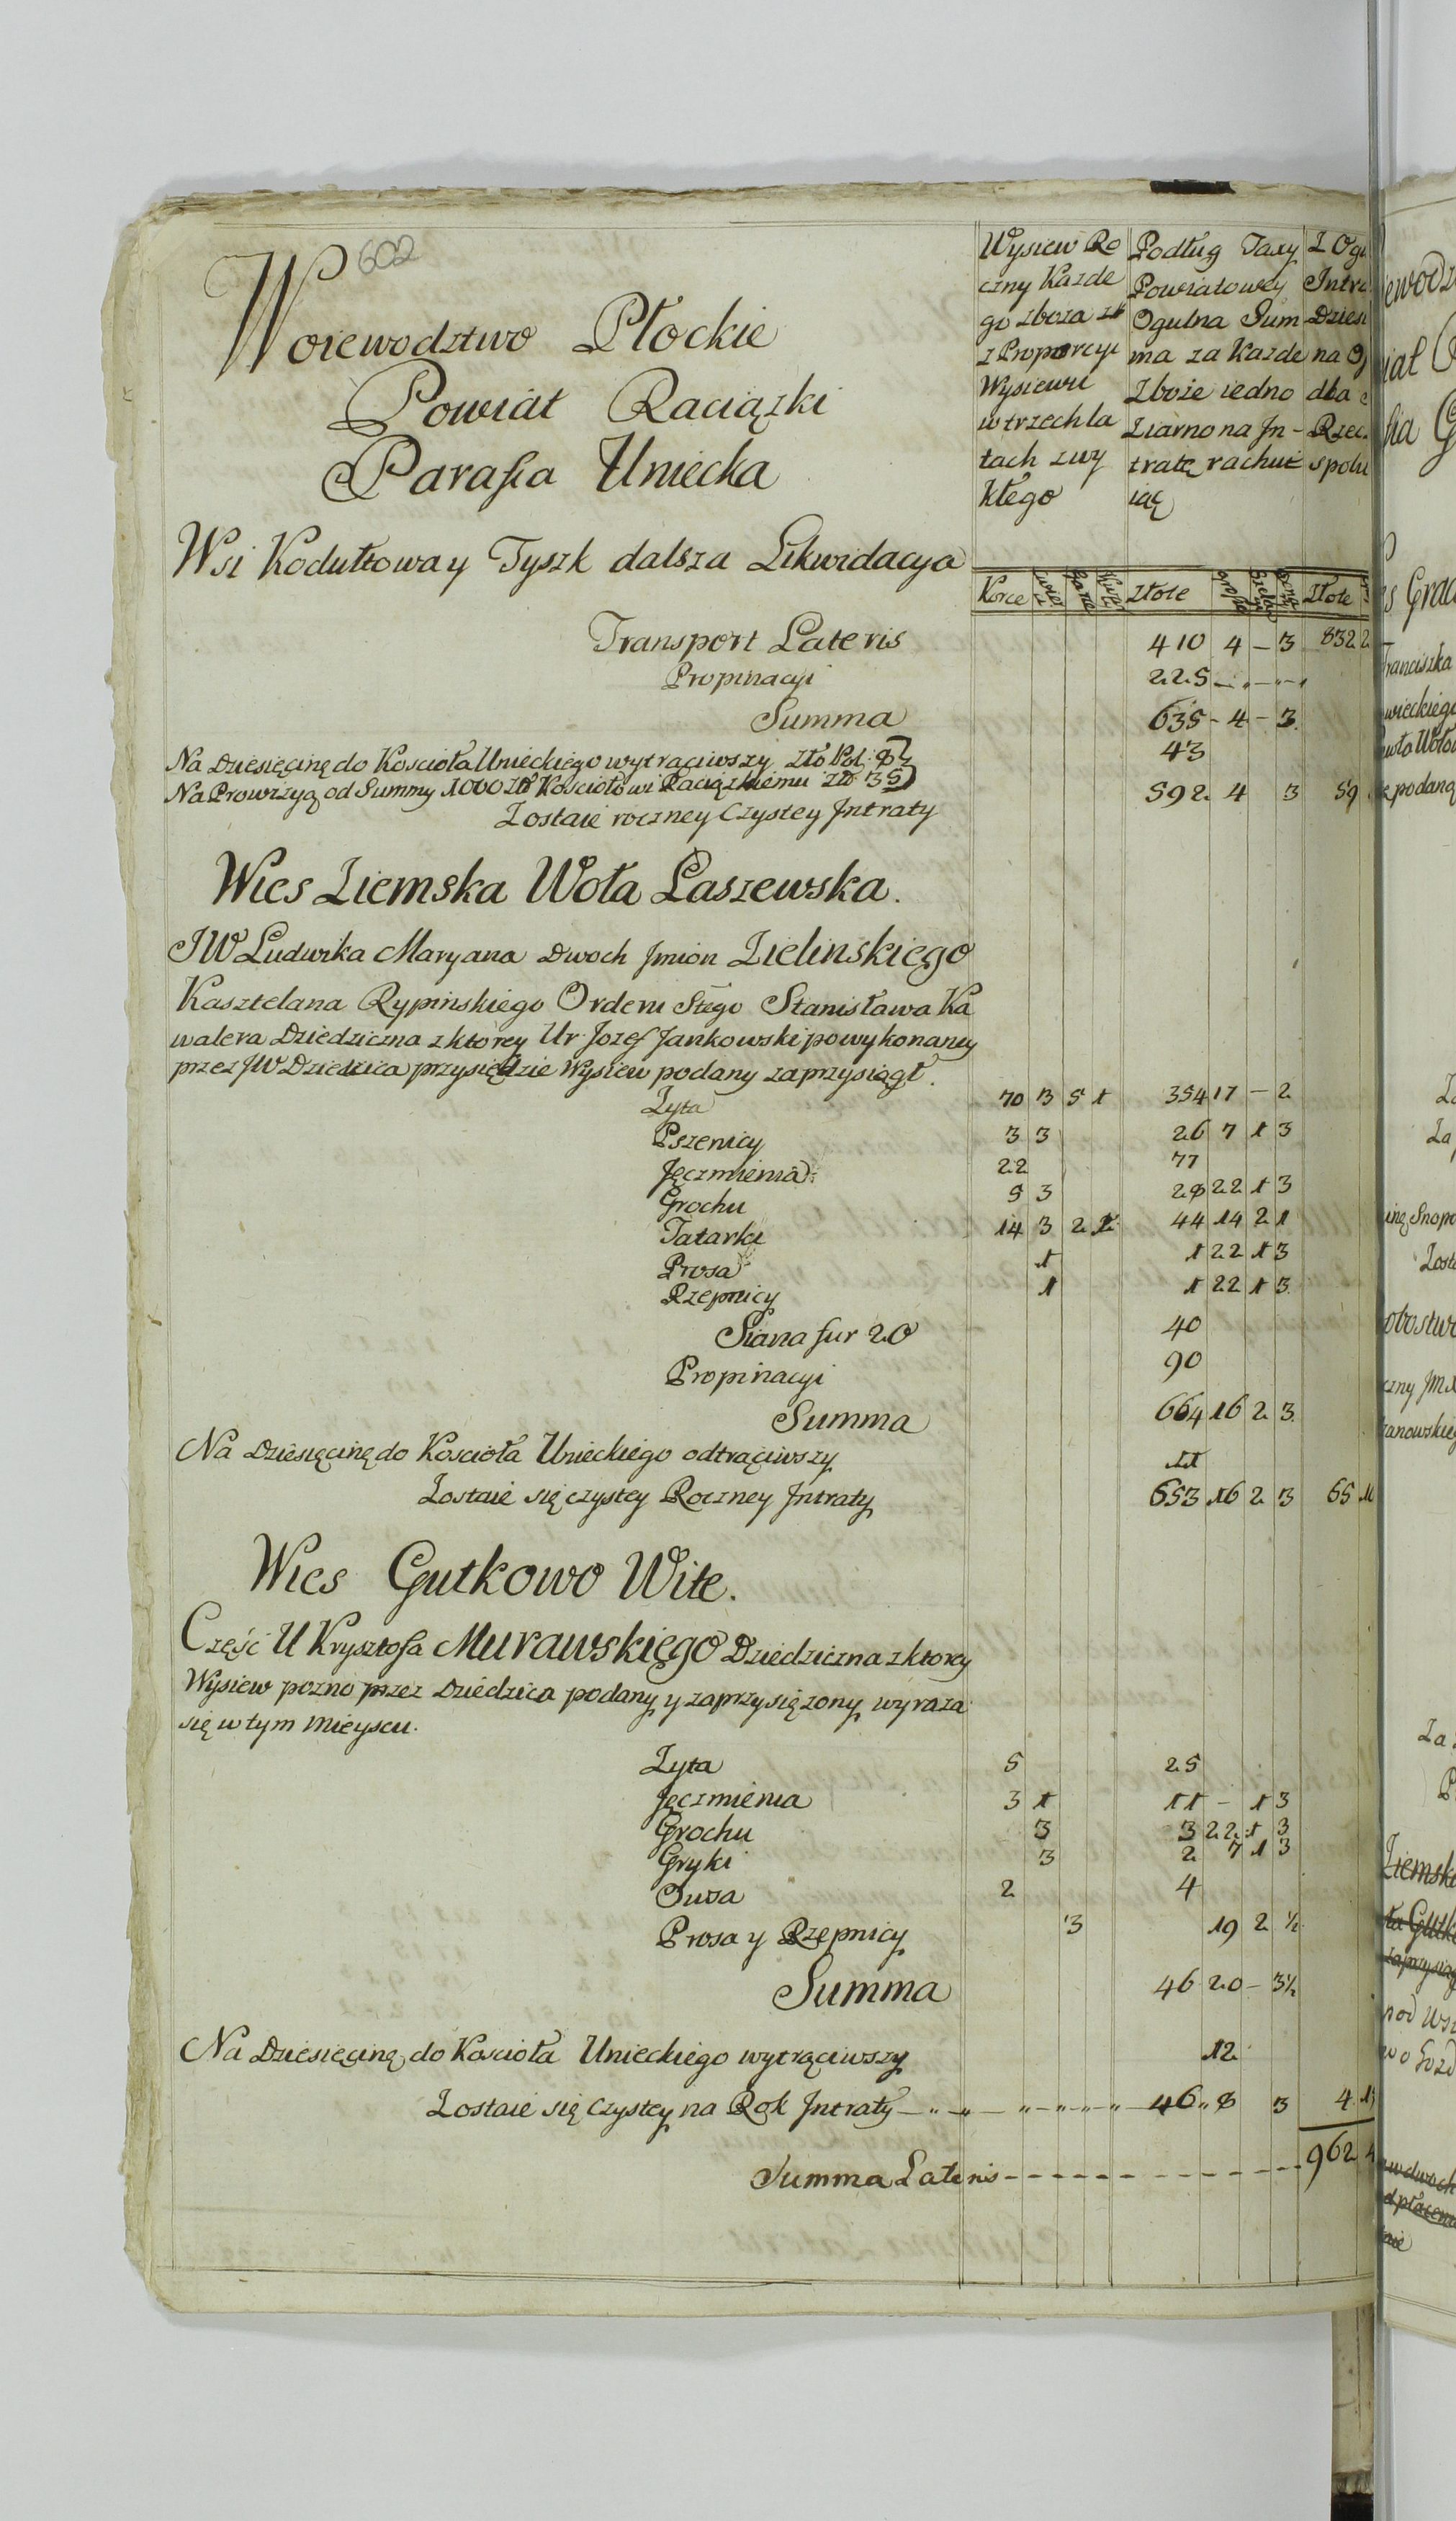 602
Woiewodztwo Płockie
Powiat Raciązki
Parafia Uniecka
Wysiew Ro
czny Kazde
go zboza
z Proporcyi
Wysiewu
w trzech la
tach zwy
kłego
Podług Taxy
Powiatowey
Ogulna Sum
ma za Kazde
Zboże iedno
Ziarno na In-
tratę rachui
iąc
Z Og
Intra
Dzies
na O
dla
Rzec.
spolu
Wsi Kodułtowa y Tyszk dalsza Likwidacya
Korce złote złote
Transport Lateris 410 4 — 3 832 2
Propinacyi 225
Summa 635 - 4 - 3
Na Dziesięcinę do Koscioła Unieckiego wytrąciwszy Zło Pol: 8 43
Na Prowizyą od Summy 1000 Zł Kosciołowi Raciązkiemu zło 35
Zostaie roczney Czystey Intraty 592 4 3 59
Wies Ziemska Wola Laszewska.
JW Ludwika Maryana Dwoch Imion Zielinskiego
Kasztelana Rypinskiego Orderu Stego Stanisława Ka
walera Dziedziczna z ktorey Ur Jozef Jankowski po wykonaney
przez JW Dziedzica przysiędzie Wysiew podany zaprzysiągł.
Zyta 70 3 5 1 354 17 — 2
Pszenicy 3 3 26 7 1 3
Jęczmienia 22 77
Grochu 5 3 28 22 1 3
Tatarki 14 3 2 2 44 14 2 1
Prosa 1 1 22 1 3
Rzepnicy 1 1 22 1 3
Siana fur 20 40
Propinacyi 90
Summa 664 16 2 3
Na Dziesięcinę do Koscioła Unieckiego odtrąciwszy 11
Zostaie się czystey Roczney Intraty 653 16 2 3 65 10
Wies Gutkowo Wite.
Część U Krysztofa Murawskięgo Dziedziczna z ktorey
Wysiew pozno przez Dziedzica podany y zaprzysięzony wyraza
się w tym mieyscu.
Zyta 5 25
Jęczmienia 3 1 11 - 1 3
Grochu 3 3 22 1 3
Gryki 3 2 7 1 3
Owsa 2 4
Prosa y Rzepnicy 3 19 2 ½
Summa 46 20 - 3½
Na Dziesięcinę do Koscioła Unieckiego wytrąciwszy 12
Zostaie się czystey na Rok Intraty 46 8 3 4
Summa Lateris 962